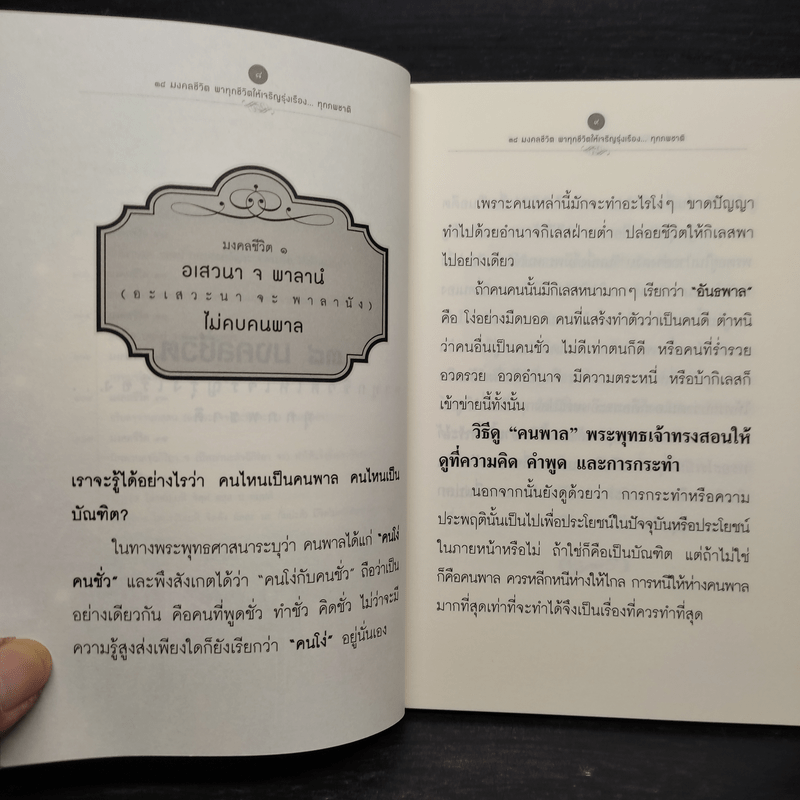 ๘
๓๘ มงคลชีวิต พาทุกชีวิตให้เจริญรุ่งเรือง... ทุกภพชาติ
มงคลชีวิต ๑
อเสวนา จ พาลานํ
(อะเสวะนา จะ พาลานัง)
ไม่คบคนพาล
เราจะรู้ได้อย่างไรว่า คนไหนเป็นคนพาล คนไหนเป็น
บัณฑิต?
ในทางพระพุทธศาสนาระบุว่า คนพาลได้แก่ "คนโง่
คนชั่ว" และพึงสังเกตได้ว่า "คนโง่กับคนชั่ว" ถือว่าเป็น
อย่างเดียวกัน คือคนที่พูดชั่ว ทำชั่ว คิดชั่ว ไม่ว่าจะมี
ความรู้สูงส่งเพียงใดก็ยังเรียกว่า "คนโง่" อยู่นั่นเอง
๙
๓๘ มงคลชีวิต พาทุกชีวิตให้เจริญรุ่งเรือง... ทุกภพชาติ
เพราะคนเหล่านี้มักจะทำอะไรโง่ๆ ขาดปัญญา
ทำไปด้วยอำนาจกิเลสฝ่ายต่ำ ปล่อยชีวิตให้กิเลสพา
ไปอย่างเดียว
ถ้าคนคนนั้นมีกิเลสหนามากๆ เรียกว่า "อันธพาล"
คือ โง่อย่างมืดบอด คนที่แสร้งทำตัวว่าเป็นคนดี ตำหนิ
ว่าคนอื่นเป็นคนชั่ว ไม่ดีเท่าตนก็ดี หรือคนที่ร่ำรวย
อวดรวย อวดอำนาจ มีความตระหนี่ หรือบ้ากิเลสก็
เข้าข่ายนี้ทั้งนั้น
วิธีดู "คนพาล" พระพุทธเจ้าทรงสอนให้
ดูที่ความคิด คำพูด และการกระทำ
นอกจากนั้นยังดูด้วยว่า การกระทำหรือความ
ประพฤตินั้นเป็นไปเพื่อประโยชน์ในปัจจุบันหรือประโยชน์
ในภายหน้าหรือไม่ ถ้าใช่ก็คือเป็นบัณฑิต แต่ถ้าไม่ใช่
ก็คือคนพาล ควรหลีกหนีห่างให้ไกล การหนีให้ห่างคนพาล
มากที่สุดเท่าที่จะทำได้จึงเป็นเรื่องที่ควรทำที่สุด